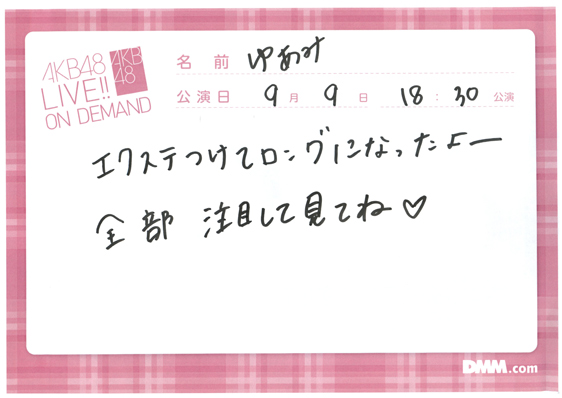 AKB48
LIVE!!
ON DEMAND
AKB
48
名前 ゆあみ
公演日 9月9日 18:30 公演
エクステつけてロングになったよー
全部 注目して見てね♡
DMM.com